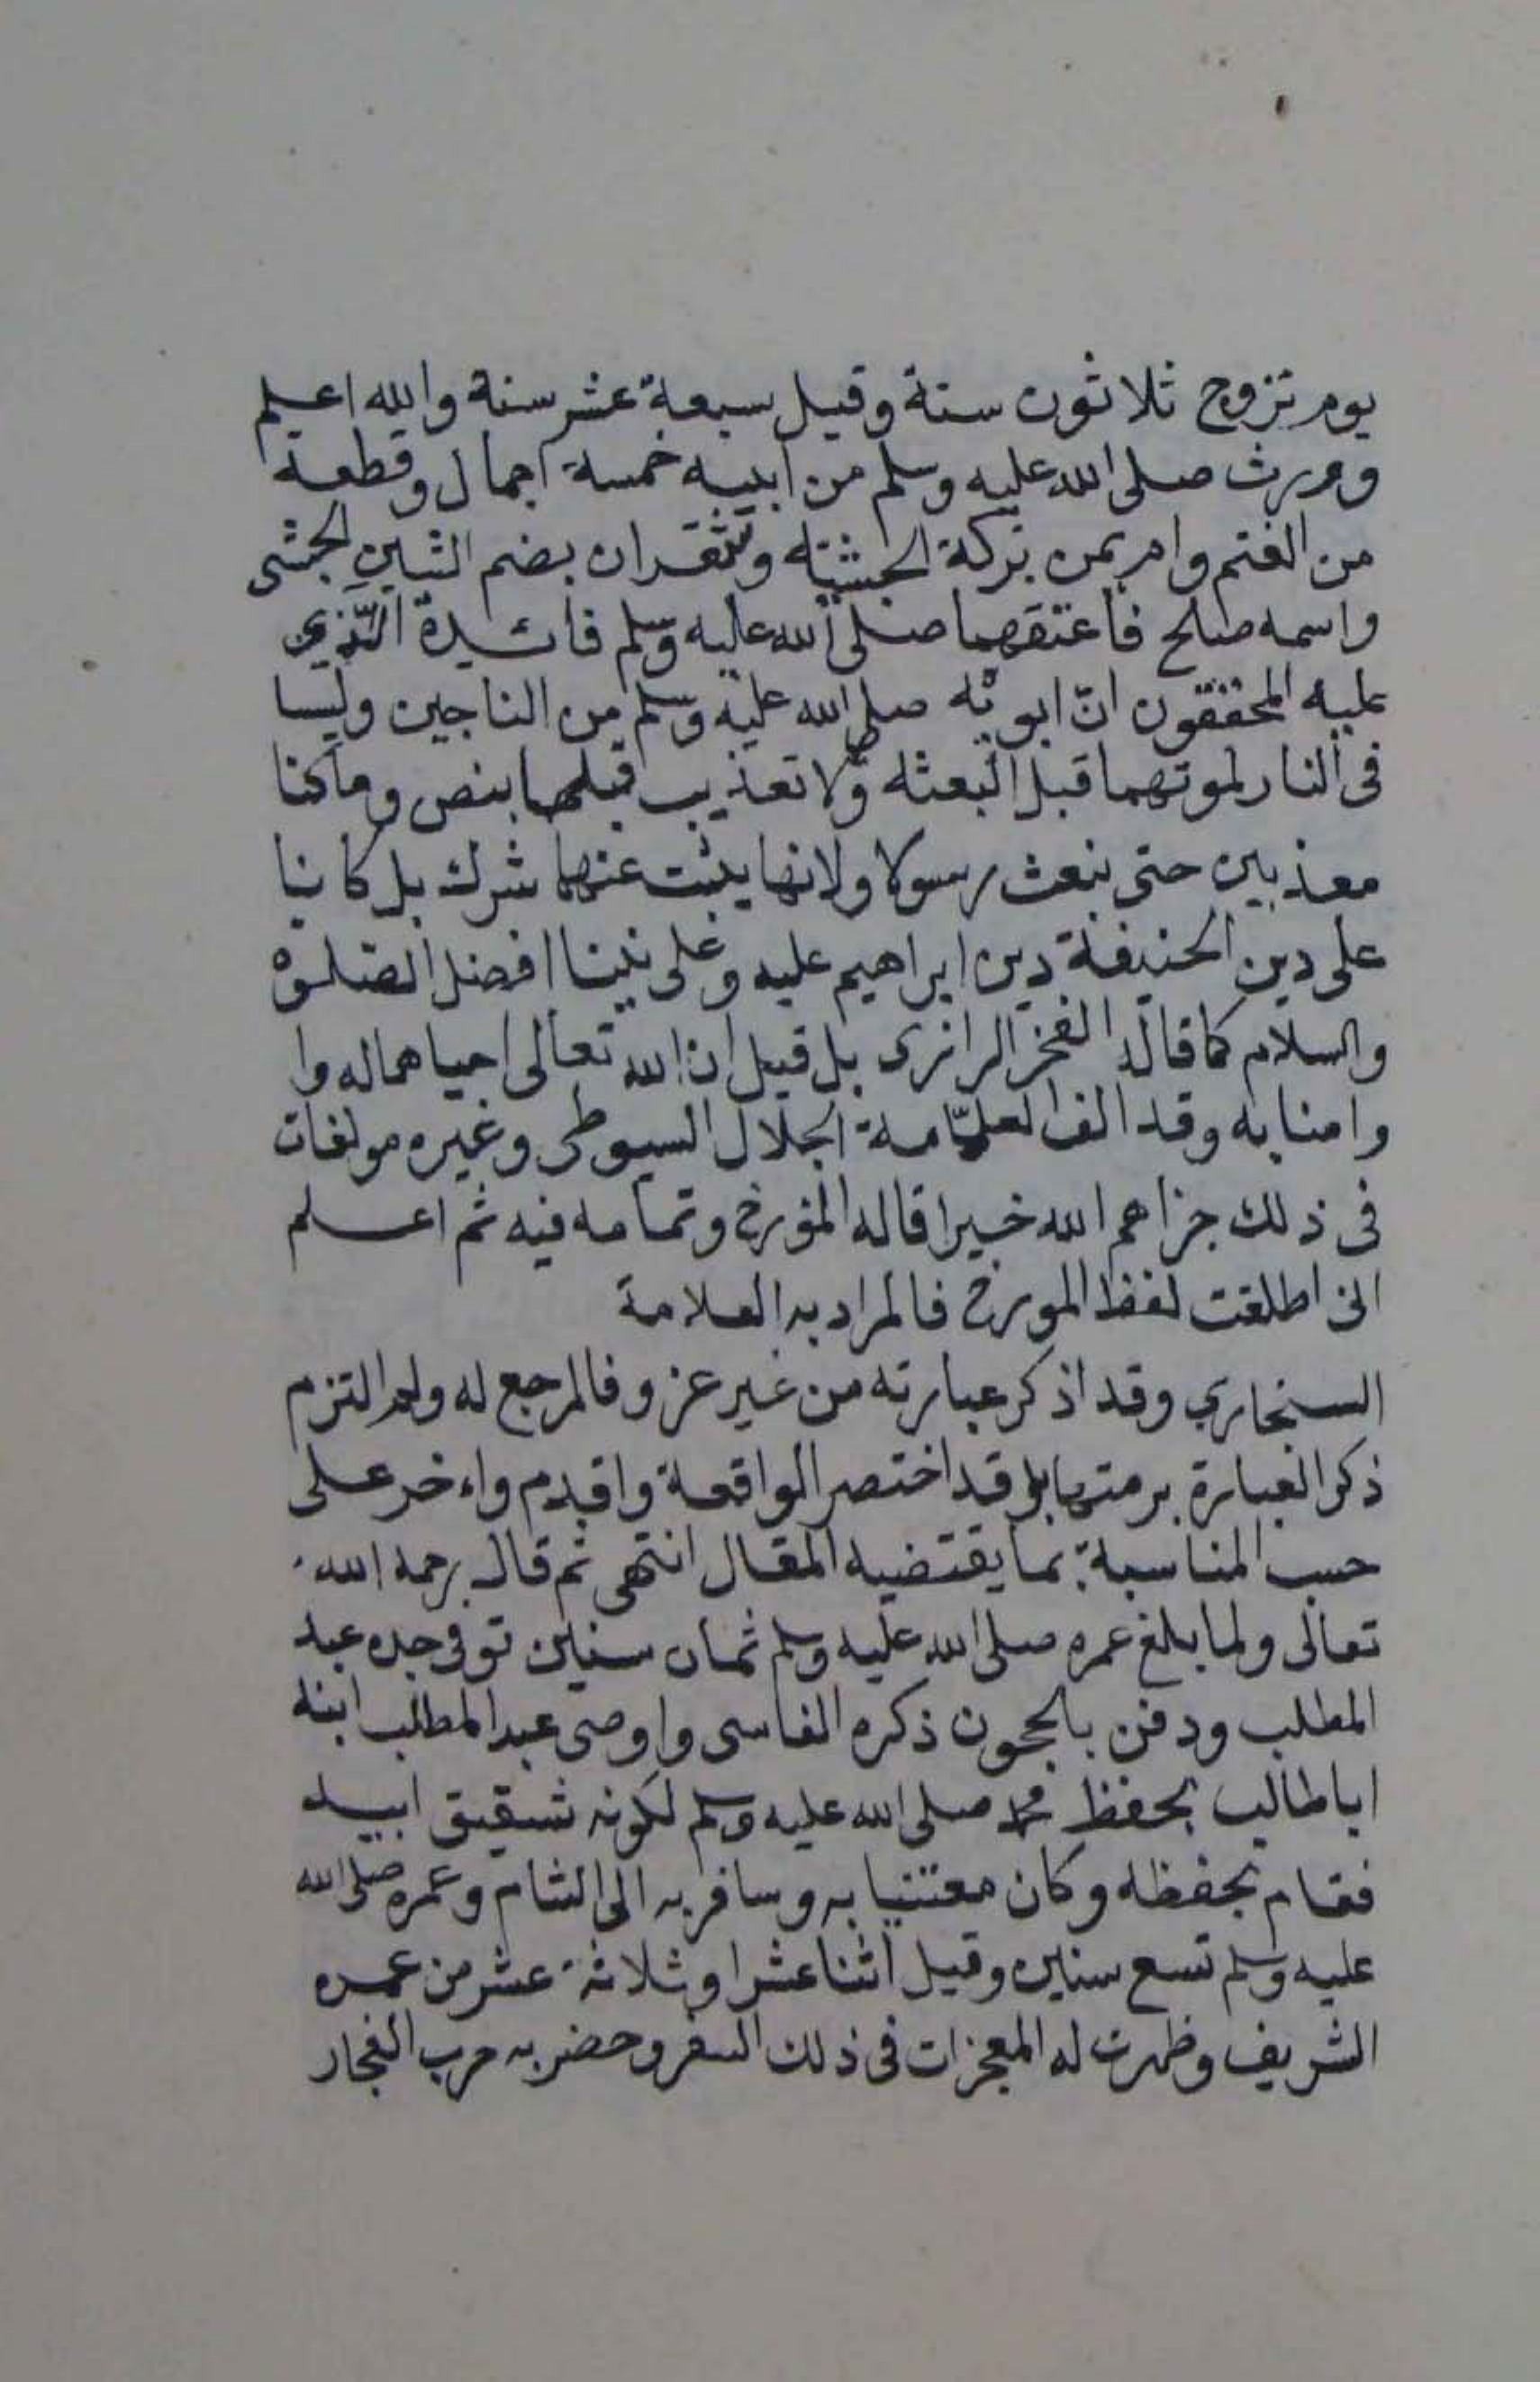 يوم تزوج ثلاثون سنة وقيل سبعة عشر سنة والله اعلم
وورث صلى الله عليه وسلم من ابيه خمسة اجمال وقطعة
من الغنم وام يمن بركة الحبشية وشقران بضم الشين الحبشى
واسمه صلح فاعتقهما صلى الله عليه وسلم فائدة الذي
عليه المحققون انّ ابويه صلى الله عليه وسلم من الناجين وليسا
فى النار لموتهما قبل البعثه ولا تعذيب قبلها بنص وما كنا
معذبين حتى نبعث رسولا ولانها يثبت عنهما شرك بل كانا
على دين الحنيفة دين ابراهيم عليه وعلى نبينا افضل الصلوة
والسلام كما قاله الفخر الرازى بل قيل ان الله تعالى احياهما له وا
وامنا به وقد الف العلّامة الجلال السيوطى وغيره مولفات
فى ذلك جزاهم الله خيرا قاله المؤرخ وتمامه فيه ثم اعلم
انى اطلقت لفظ المورخ فالمراد به العلامة
السنجاري وقد اذكر عبارته من غير عزو فالمرجع له ولم التزم
ذكر العبارة برمتها بل وقد اختصر الواقعة واقدم واءخر على
حسب المناسبة بما يقتضيه المقال انتهى ثم قال رحمه الله
تعالى ولما بلغ عمره صلى الله عليه وسلم ثمان سنين توفى جده عبد
المطلب ودفن بالحجون ذكره الفاسى واوصى عبد المطلب ابنه
اباطالب بحفظ محمد صلى الله عليه وسلم لكونه شقيق ابيه
فقام بحفظه وكان معتنيا به وسافر به الى الشام وعمره صلى الله
عليه وسلم تسع سنين وقيل اثنا عشر او ثلاثة عشر من عمره
الشريف وظهرت له المعجزات فى ذلك السفر وحضر به حرب الفجار